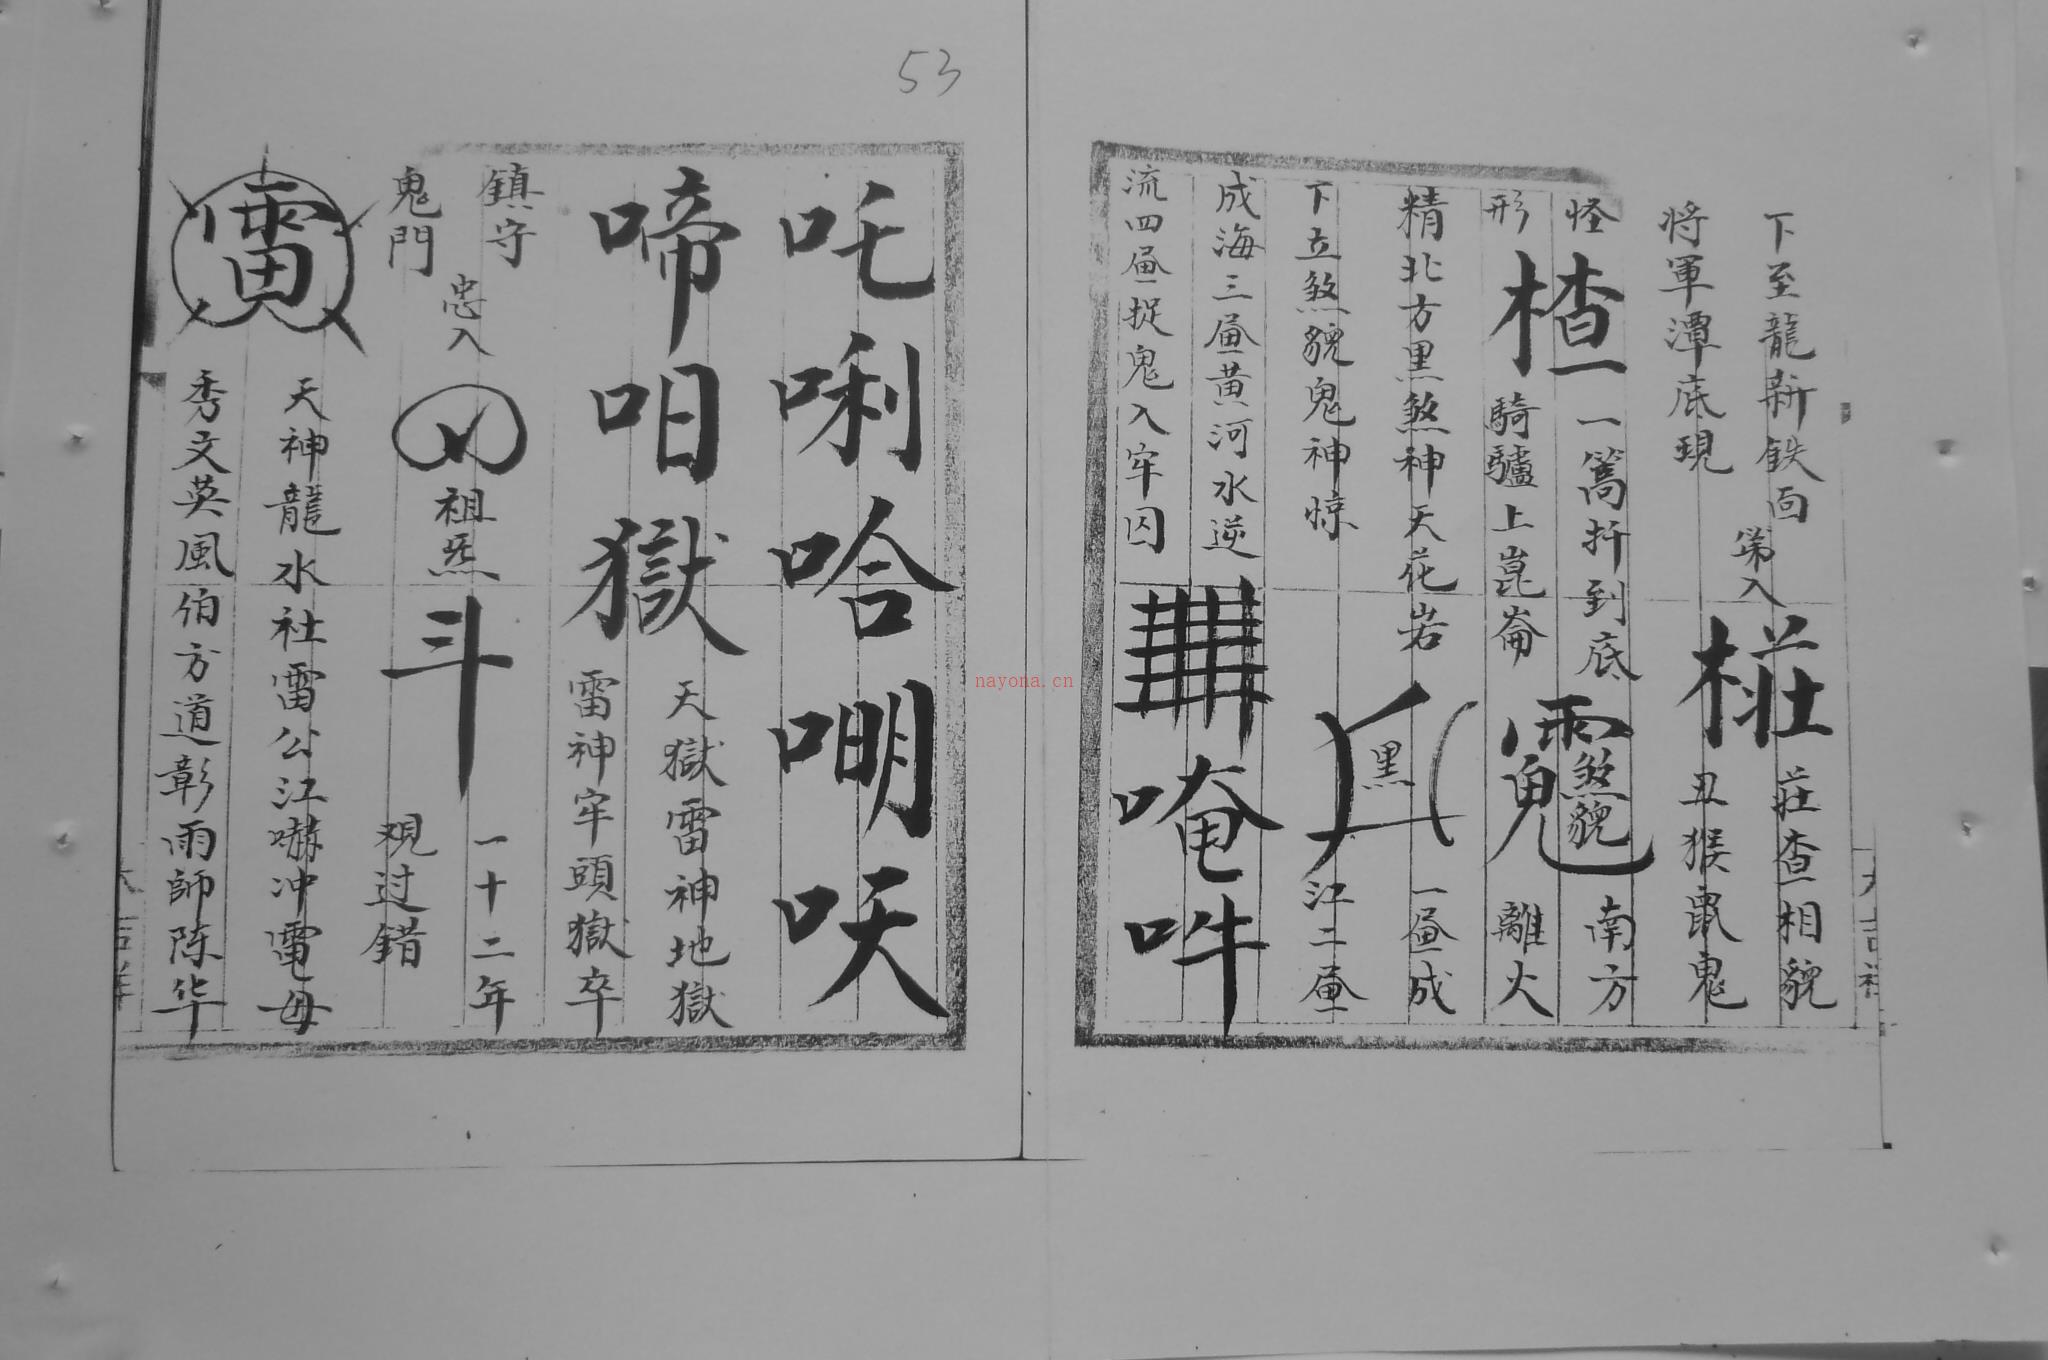 53
下至龍新鉄面
将軍潭底現
第入
椪莊查相貌
丑猴鼠鬼
怪
一篙扦到底
南方
形
楂
騎驢上崑崙
離火
煞貌
精北方黑煞神天花岩
一画成
下立煞貌鬼神惊
黑
江二画
成海三画黄河水逆
流四画捉鬼入牢囚
唵吽
吒唎哈嘣㕭
啼呾獄
天獄雷神地獄
雷神牢頭獄卒
鎮守
鬼門
忠入
祖炁
斗
一十二年
观过錯
雷
天神龍水社雷公江嘯冲電母
秀文英風伯方道彰雨師陈华
nayona.cn